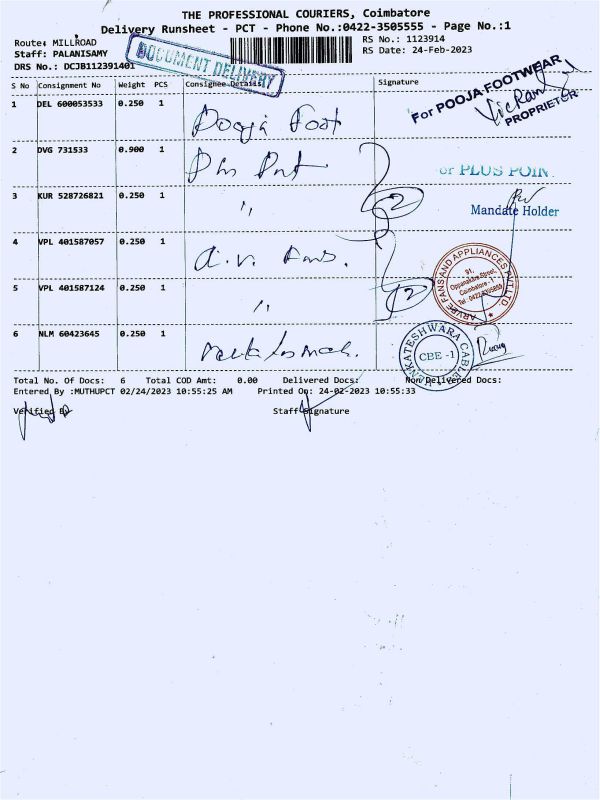 THE PROFESSIONAL COURIERS, Coimbatore
Delivery Runsheet - PCT - Phone No.:0422-3505555 - Page No.:1
Route: MILLROAD
RS No.: 1123914
Staff: PALANISAMY
RS Date: 24-Feb-2023
DRS No.: DCJB112391401
DOCUMENT DELIVERY
S No Consignment No Weight PCS Consignee Details Signature
1 DEL 600053533 0.250 1 Pooja Foot
For POOJA FOOTWEAR
PROPRIETOR
2 DVG 731533 0.900 1
or PLUS POIN
3 KUR 528726821 0.250 1 "
2
Mandate Holder
4 VPL 401587057 0.250 1 A.V. Fans.
ARUPE FANS AND APPLIANCES PVT LTD.
91,
Oppanakkra Street,
Coimbatore - 1
5 VPL 401587124 0.250 1 "
2
6 NLM 60423645 0.250 1
ANKATESHWARA CABLE
CBE -1
Total No. Of Docs: 6 Total COD Amt: 0.00 Delivered Docs: Non Delivered Docs:
Entered By :MUTHUPCT 02/24/2023 10:55:25 AM Printed On: 24-02-2023 10:55:33
Verified By Staff Signature